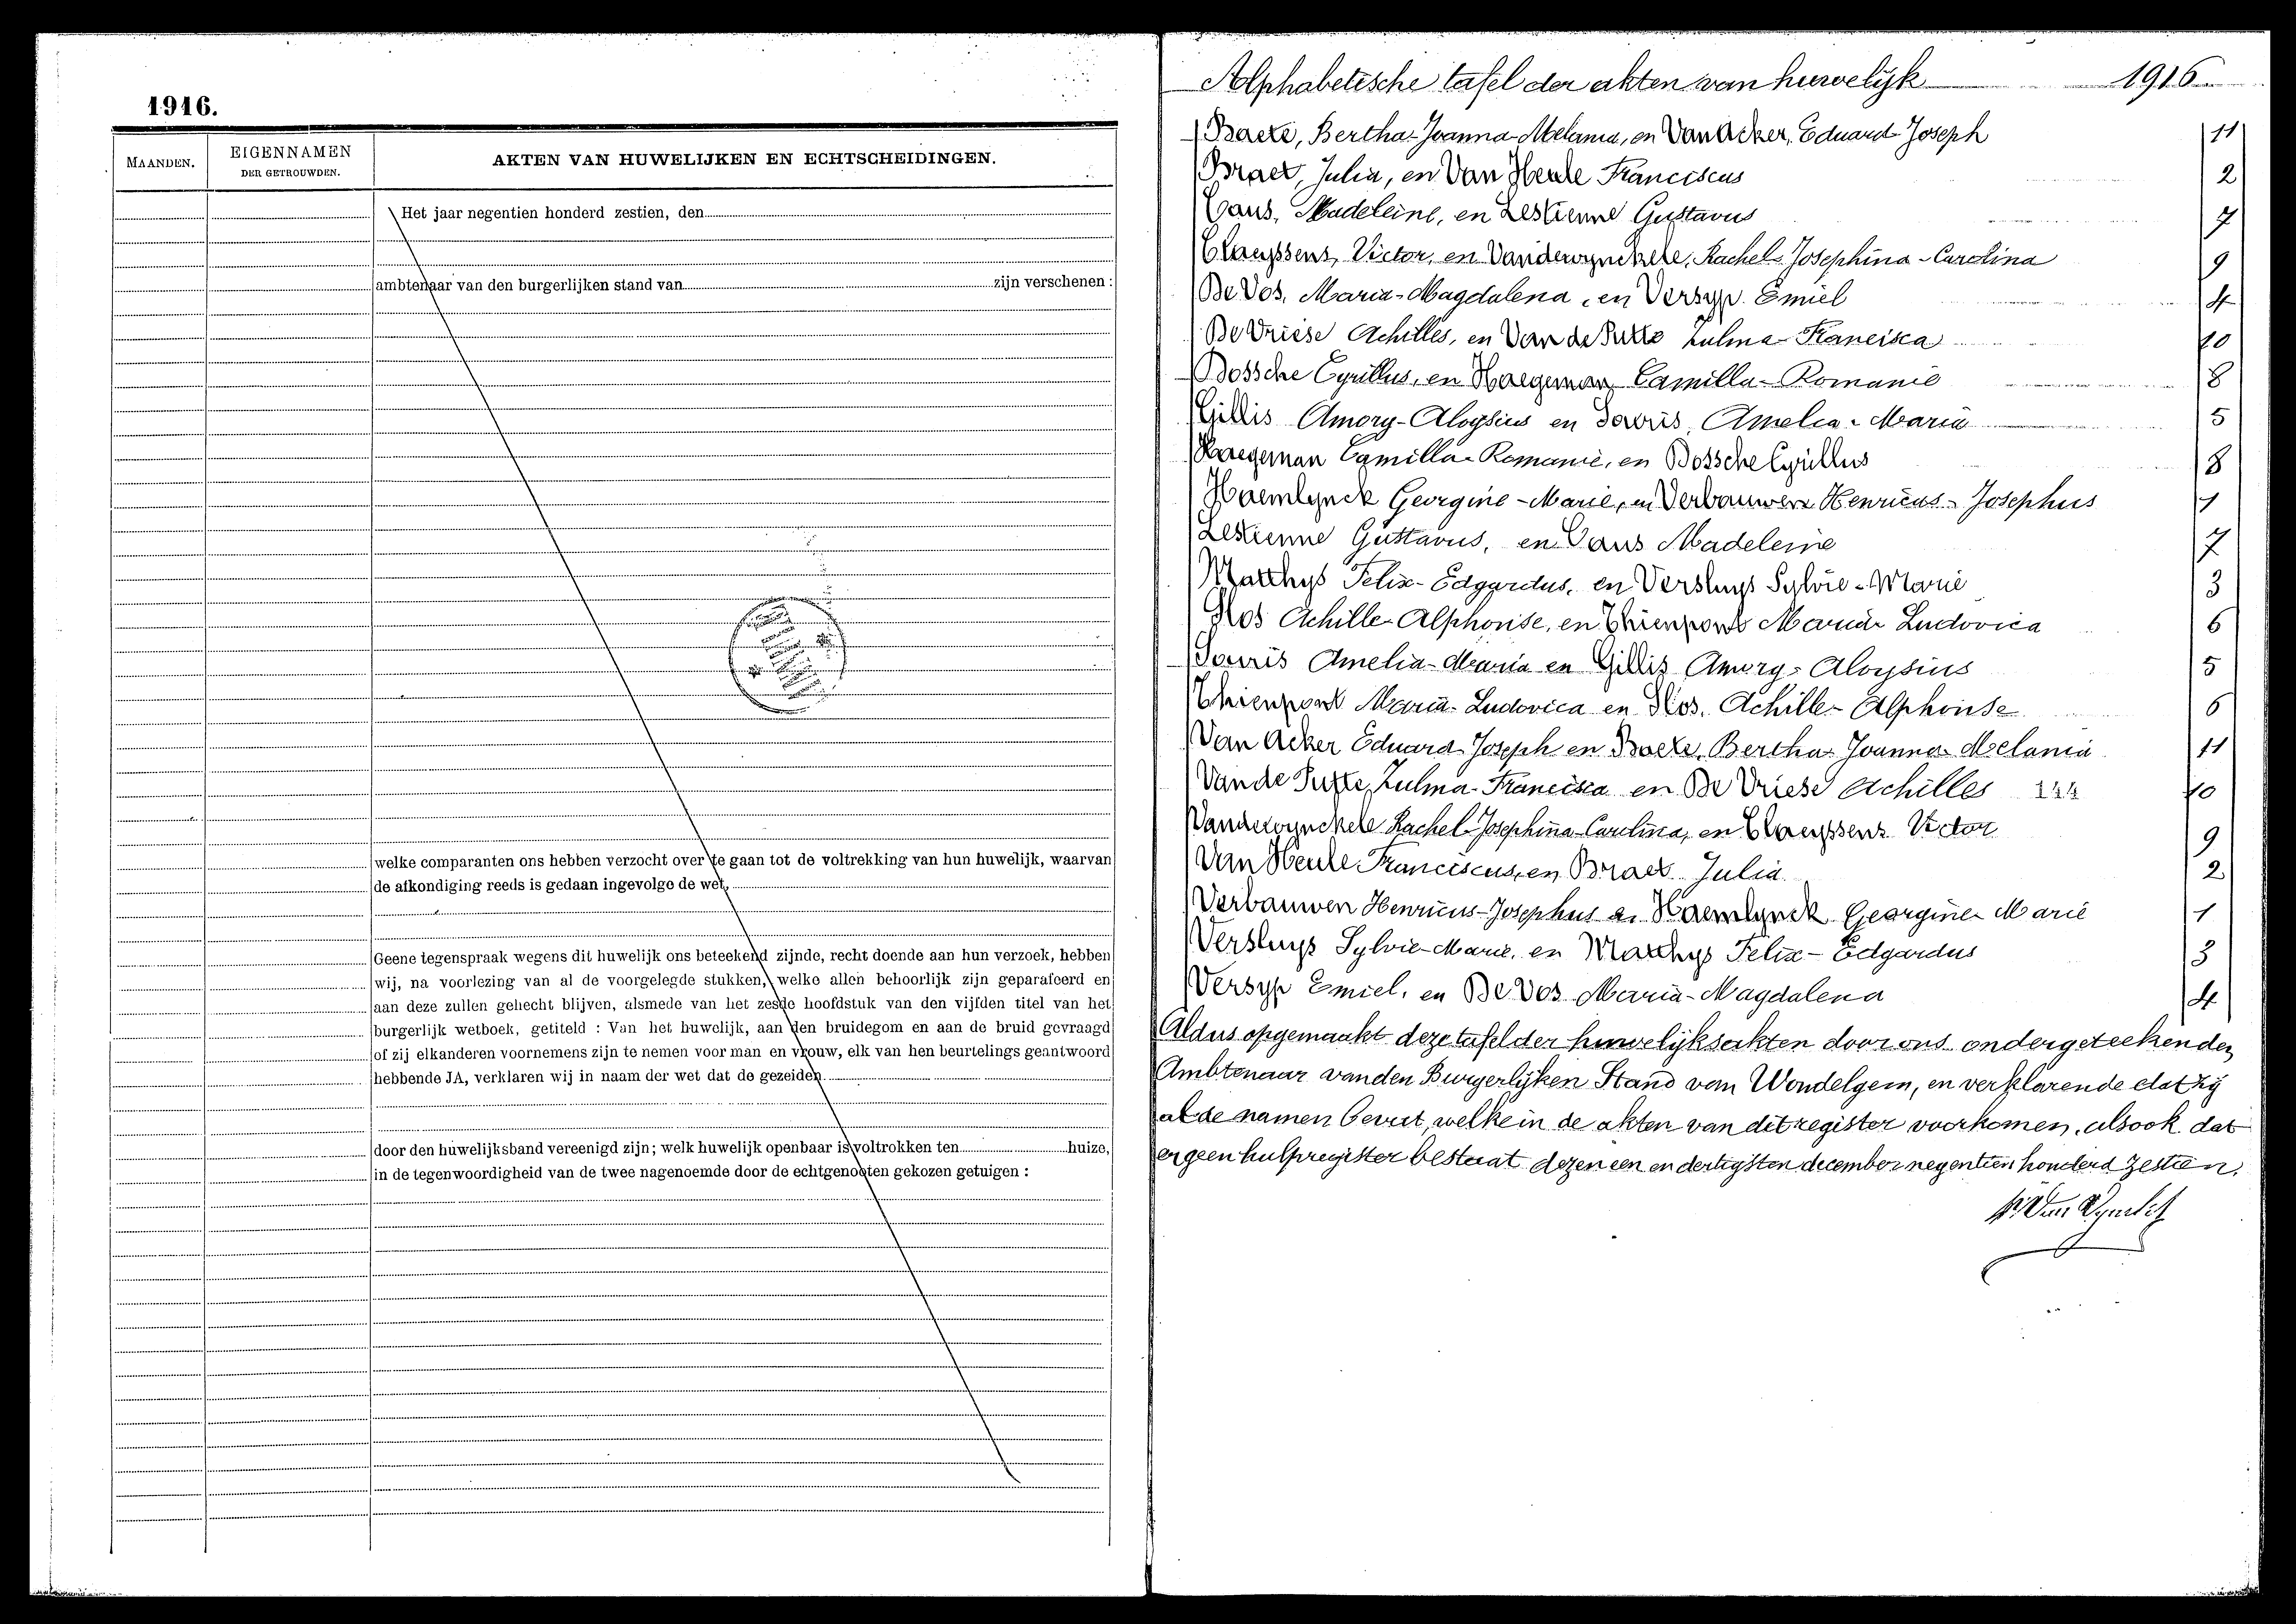 1916.
MAANDEN.
EIGENNAMEN
DER GETROUWDEN.
AKTEN VAN HUWELIJKEN EN ECHTSCHEIDINGEN.
Het jaar negentien honderd zestien, den
ambtenaar van den burgerlijken stand van zijn verschenen :
welke comparanten ons hebben verzocht over te gaan tot de voltrekking van hun huwelijk, waarvan
de afkondiging reeds is gedaan ingevolge de wet,
Geene tegenspraak wegens dit huwelijk ons beteekend zijnde, recht doende aan hun verzoek, hebben
wij, na voorlezing van al de voorgelegde stukken, welke allen behoorlijk zijn geparafeerd en
aan deze zullen gehecht blijven, alsmede van het zesde hoofdstuk van den vijfden titel van het
burgerlijk wetboek, getiteld : Van het huwelijk, aan den bruidegom en aan de bruid gevraagd
of zij elkanderen voornemens zijn te nemen voor man en vrouw, elk van hen beurtelings geantwoord
hebbende JA, verklaren wij in naam der wet dat de gezeiden
door den huwelijksband vereenigd zijn; welk huwelijk openbaar is voltrokken ten huize,
in de tegenwoordigheid van de twee nagenoemde door de echtgenooten gekozen getuigen :
Alphabetische tafel der akten van huwelijk 1916
Baete, Bertha-Joanna-Melania, en Van Acker, Eduard-Joseph 11
Braet, Julia, en Van Heule Franciscus 2
Caus, Madeleine, en Lestienne Gustavus 7
Claeyssens, Victor, en Vanderoynckele, Rachel-Josephina-Carolina 9
De Vos, Maria-Magdalena, en Versyp Emiel 4
De Vriese Achilles, en Van de Putte Zulma-Francisca 10
Dossche Cyrillus, en Haegeman, Camilla-Romanie 8
Gillis Amory-Aloysius en Amelia-Maria 5
Haegeman Camilla-Romanie, en Dossche Cyrillus 8
Haemlynck Georgine-Marie, en Verbauwen Henricus-Josephus 1
Lestienne Gustavus, en Caus Madeleine 7
Matthys Felix-Edgardus, en Versluys Sylvie-Marie 3
Achille-Alphonse, en Thienpont Maria-Ludovica 6
Amelia-Maria en Gillis Amory-Aloysius 5
Thienpont Maria-Ludovica en Achille-Alphonse 6
Van Acker Eduard-Joseph en Baete, Bertha-Joanna-Melania 11
Van de Putte, Zulma-Francisca en De Vriese Achilles 10
Vanderoynckele Rachel-Josephina-Carolina, en Claeyssens Victor 9
Van Heule Franciscus, en Braet Julia 2
Verbauwen Henricus-Josephus en Haemlynck Georgine-Marie 1
Versluys Sylvie-Marie, en Matthys Felix-Edgardus 3
Versyp Emiel, en De Vos Maria-Magdalena 4
Aldus opgemaakt deze tafel der huwelijksakten door ons ondergeteekenden
Ambtenaar van den Burgerlijken Stand van Wondelgem, en verklarende dat hij
al de namen bevat, welke in de akten van dit register voorkomen, alsook dat
er geen hulpregister bestaat dezen een en dertigsten december negentien honderd zestien.